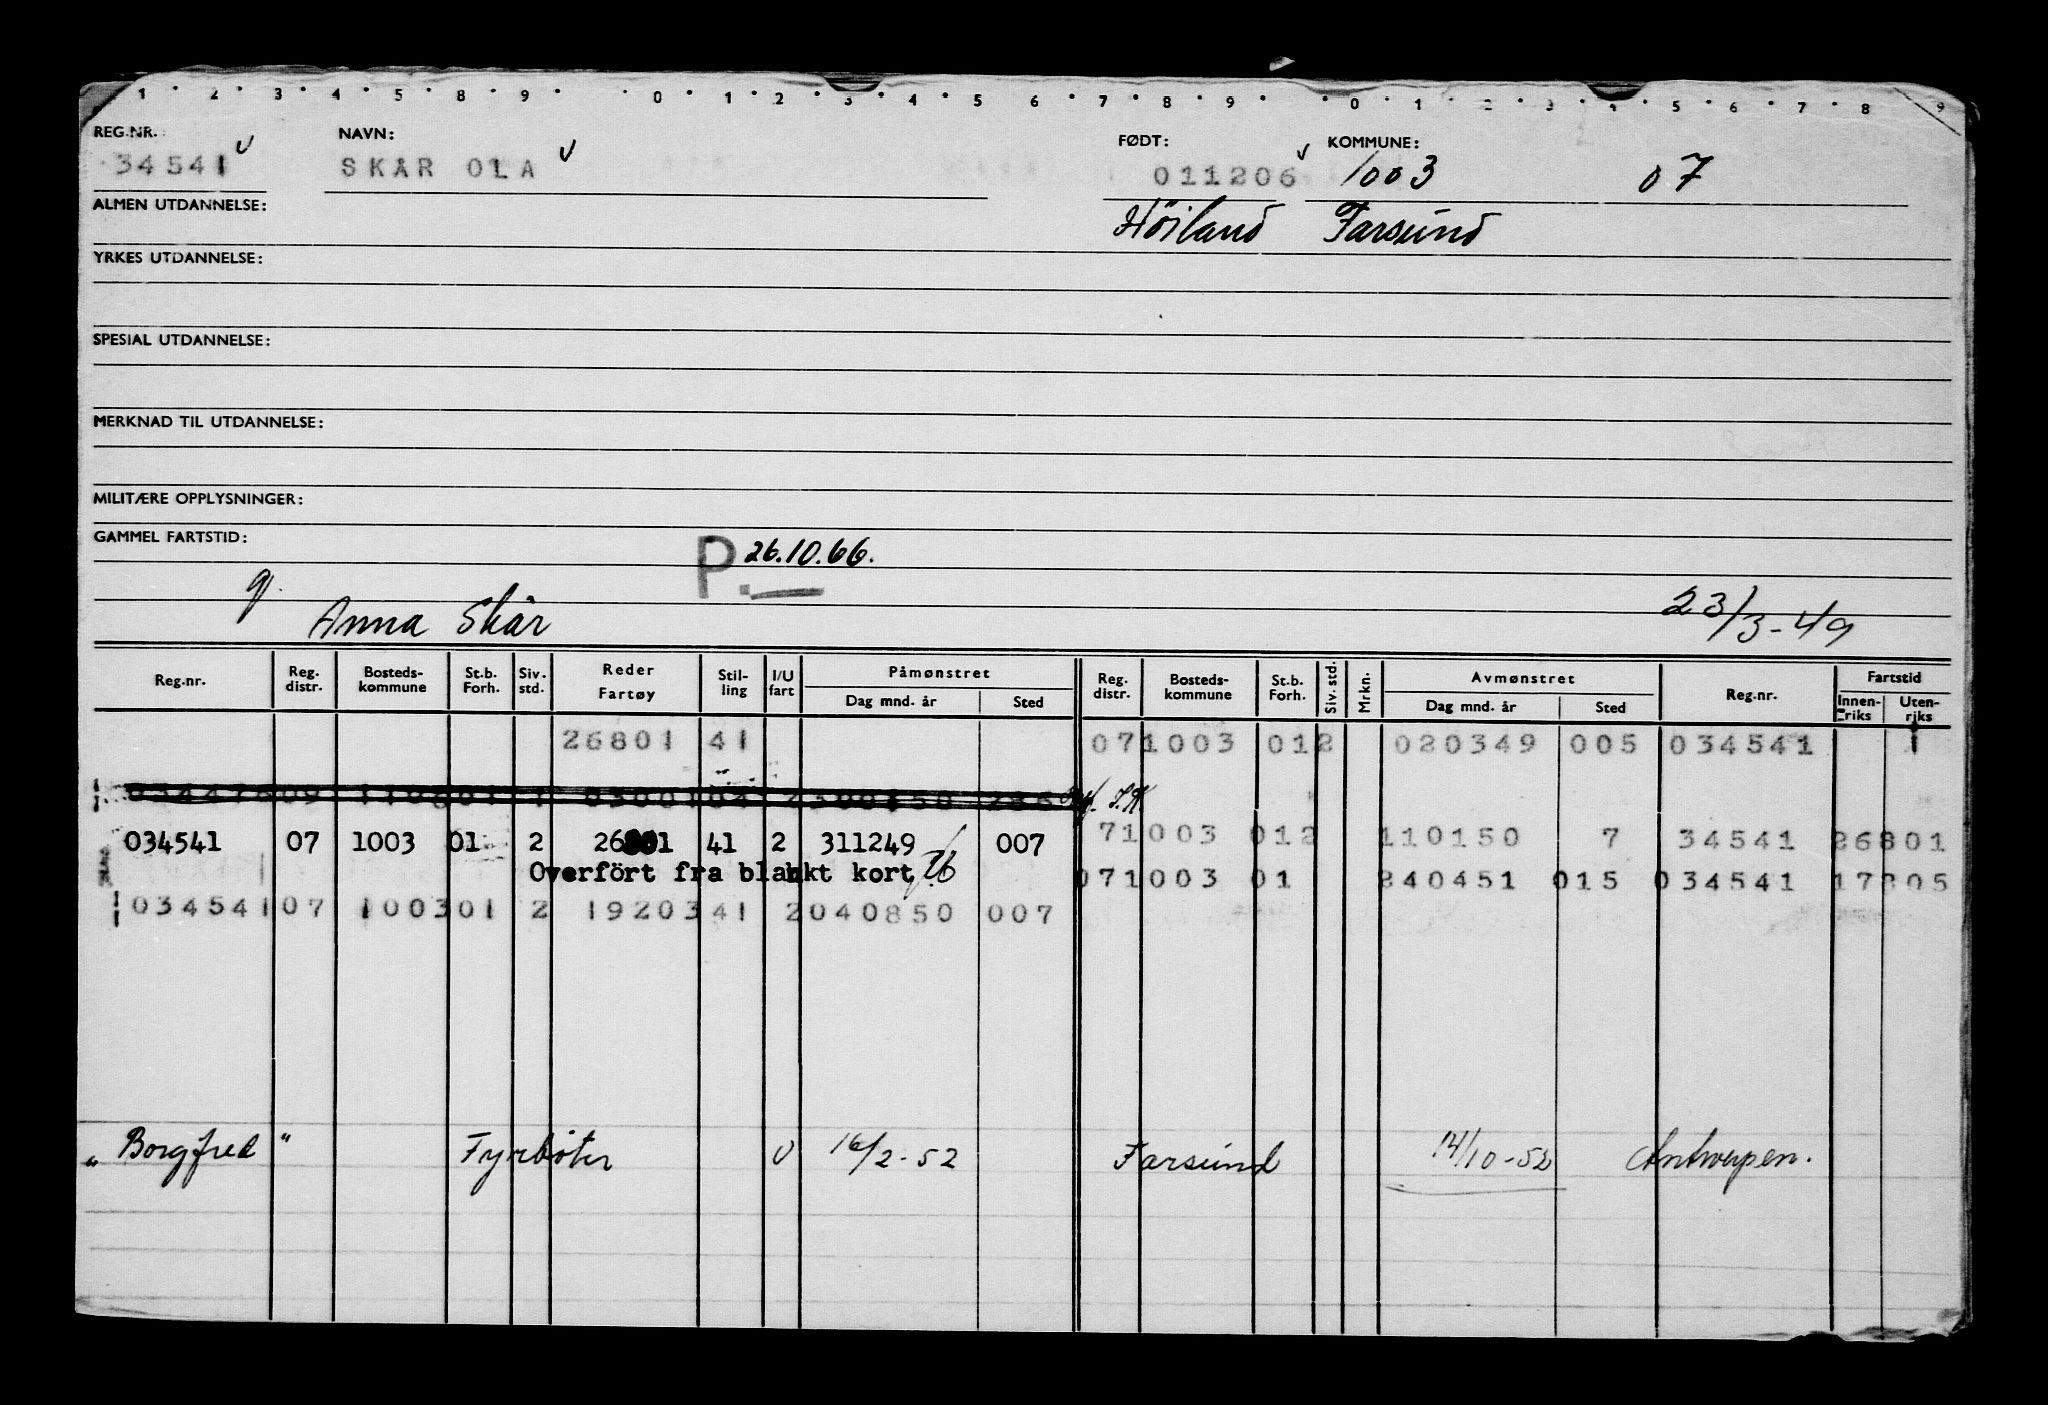 1 2 3 4 5 8 9 0 1 2 3 4 5 6 7 8 9 0 1 2 3 4 5 6 7 8 9
REG.NR. NAVN: FØDT: KOMMUNE:
34541 SKAR OLA 011206 1003 07
ALMEN UTDANNELSE: Höiland Farsund
YRKES UTDANNELSE:
SPESIAL UTDANNELSE:
MERKNAD TIL UTDANNELSE:
MILITÆRE OPPLYSNINGER:
GAMMEL FARTSTID: P. 26.10.66.
g. Anna Skår 23/3-49
Reg.nr. Reg. distr. Bosteds-kommune St.b. Forh. Siv. std. Reder Fartøy Stil-ling I/U fart Påmønstret Dag mnd. år Sted Reg. distr. Bosteds-kommune St.b. Forh. Siv. std. Mrkn. Avmønstret Dag mnd. år Sted Reg.nr. Fartstid Innen-riks Uten-riks
26801 41 071003 012 020349 005 034541 1
034541 07 1003 01 2 26801 41 2 311249 007 71003 012 110150 7 34541 26801
Overfört fra blankt kort 071003 01 240451 015 034541 17805
034541 07 1003 01 2 19203 41 2 040850 007
"Borgfred" Fyrböter U 16/2-52 Farsund 14/10-52 Antwerpen.